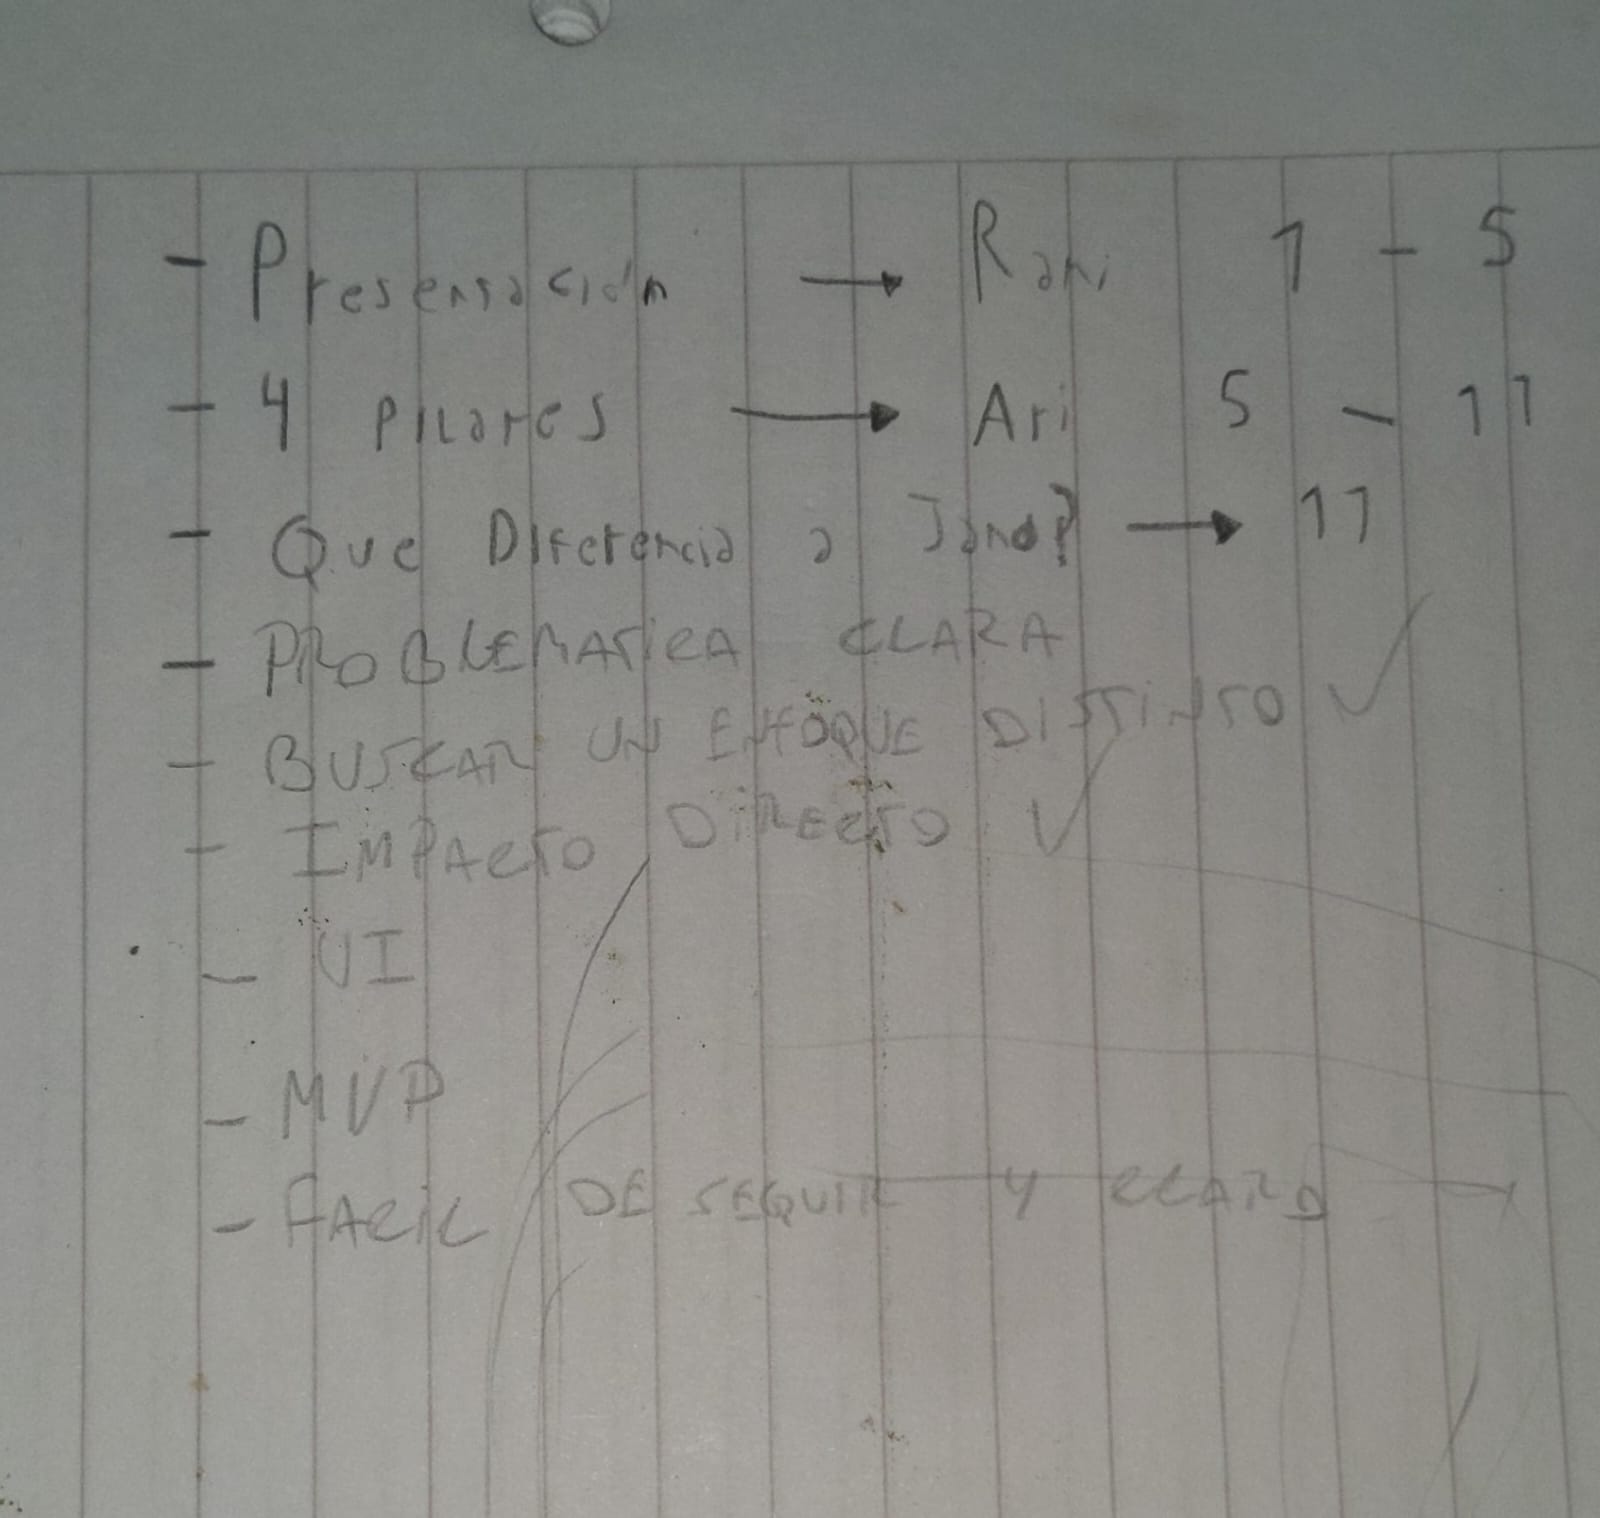 - Presentación → Rani 1 - 5
- 4 PILares → Ari 5 - 11
- Que Diferencia a Jano? → 11
- PROBLEMATICA CLARA
- BUSCAR UN ENFOQUE DISTINTO ✓
- IMPACTO DIRECTO ✓
- UI
- MVP
- FACIL DE SEGUIR Y CLARO